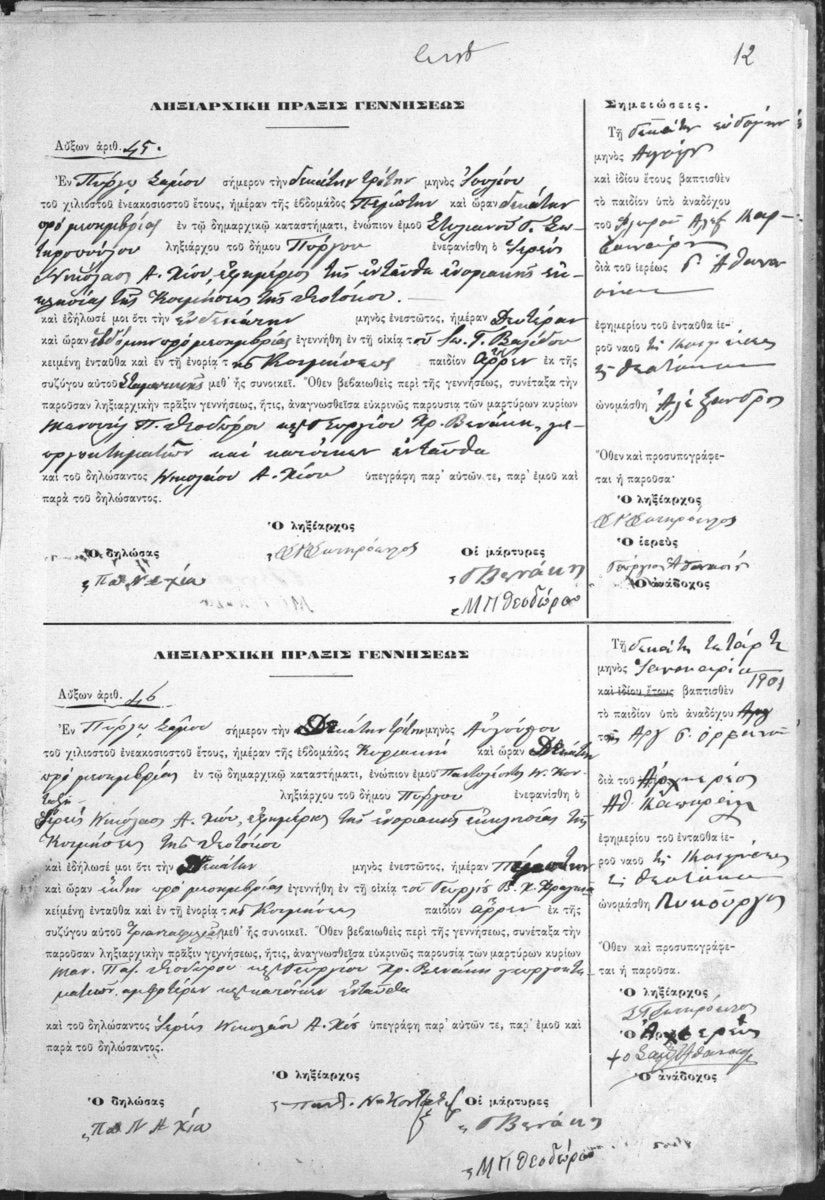 12
ΛΗΞΙΑΡΧΙΚΗ ΠΡΑΞΙΣ ΓΕΝΝΗΣΕΩΣ
Αὔξων ἀριθ. 45.
Ἐν Πύργῳ Σάμου σήμερον τὴν δεκάτην τρίτην μηνὸς Ἰουλίου
τοῦ χιλιοστοῦ ἐνεακοσιοστοῦ ἔτους, ἡμέραν τῆς ἑβδομάδος Πέμπτην καὶ ὥραν δεκάτην
πρὸ μεσημβρίας ἐν τῷ δημαρχικῷ καταστήματι, ἐνώπιον ἐμοῦ Στυλιανοῦ Γ. Σω-
τηροπούλου ληξιάρχου τοῦ δήμου Πύργου ἐνεφανίσθη ὁ Ἱερεὺς
Νικόλαος Α. Χίου, ἐφημέριος τῆς ἐνταῦθα ἐνοριακῆς ἐκ-
κλησίας τῆς Κοιμήσεως τῆς Θεοτόκου.
καὶ ἐδήλωσέ μοι ὅτι τὴν ἑνδεκάτην μηνὸς ἐνεστῶτος, ἡμέραν Δευτέραν
καὶ ὥραν ἑβδόμην πρὸ μεσημβρίας ἐγεννήθη ἐν τῇ οἰκίᾳ τοῦ Ἰω. Γ.
κειμένῃ ἐνταῦθα καὶ ἐν τῇ ἐνορίᾳ τῆς Κοιμήσεως παιδίον ἄρρεν ἐκ τῆς
συζύγου αὐτοῦ Σταματικῆς μεθ' ἧς συνοικεῖ. Ὅθεν βεβαιωθεὶς περὶ τῆς γεννήσεως, συνέταξα τὴν
παροῦσαν ληξιαρχικὴν πρᾶξιν γεννήσεως, ἥτις, ἀναγνωσθεῖσα εὐκρινῶς παρουσίᾳ τῶν μαρτύρων κυρίων
Μανουὴλ Π. Θεοδώρου καὶ Γεωργίου Χρ. Βενάκη, γε-
ωργοκτηματιῶν καὶ κατοίκων ἐνταῦθα
καὶ τοῦ δηλώσαντος Νικολάου Α. Χίου ὑπεγράφη παρ' αὐτῶν τε, παρ' ἐμοῦ καὶ
παρὰ τοῦ δηλώσαντος.
Ὁ ληξίαρχος
Ὁ δηλώσας Οἱ μάρτυρες
Παπ Ν Α Χία Γ Βενάκη
Μ Π Θεοδώρου
Σημειώσεις.
Τῇ δεκάτῃ ἑβδόμῃ
μηνὸς
καὶ ἰδίου ἔτους βαπτισθὲν
τὸ παιδίον ὑπὸ ἀναδόχου
τοῦ
διὰ τοῦ ἱερέως Γ. Ἀθανα
ἐφημερίου τοῦ ἐνταῦθα ἱε-
ροῦ ναοῦ τῆς Κοιμήσεως
τῆς Θεοτόκου
ὠνομάσθη Ἀλέξανδρος
Ὅθεν καὶ προσυπογράφε-
ται ἡ παροῦσα·
Ὁ ληξίαρχος
Ὁ ἱερεὺς
Γεώργιος
Ὁ ἀνάδοχος
ΛΗΞΙΑΡΧΙΚΗ ΠΡΑΞΙΣ ΓΕΝΝΗΣΕΩΣ
Αὔξων ἀριθ. 46
Ἐν Πύργῳ Σάμου σήμερον τὴν Δεκάτην τρίτην μηνὸς Αὐγούστου
τοῦ χιλιοστοῦ ἐνεακοσιοστοῦ ἔτους, ἡμέραν τῆς ἑβδομάδος Κυριακὴν καὶ ὥραν Δεκάτην
πρὸ μεσημβρίας ἐν τῷ δημαρχικῷ καταστήματι, ἐνώπιον ἐμοῦ Ν. Κον-
ληξιάρχου τοῦ δήμου Πύργου ἐνεφανίσθη ὁ
Ἱερεὺς Νικόλαος Α. Χίου, ἐφημέριος τῆς ἐνοριακῆς ἐκκλησίας τῆς
Κοιμήσεως τῆς Θεοτόκου
καὶ ἐδήλωσέ μοι ὅτι τὴν Δεκάτην μηνὸς ἐνεστῶτος, ἡμέραν Πέμπτην
καὶ ὥραν ἕκτην πρὸ μεσημβρίας ἐγεννήθη ἐν τῇ οἰκίᾳ τοῦ Γεωργίου Β. Χ.
κειμένῃ ἐνταῦθα καὶ ἐν τῇ ἐνορίᾳ τῆς Κοιμήσεως παιδίον ἄρρεν ἐκ τῆς
συζύγου αὐτοῦ Τριανταφυλλιᾶς μεθ' ἧς συνοικεῖ. Ὅθεν βεβαιωθεὶς περὶ τῆς γεννήσεως, συνέταξα τὴν
παροῦσαν ληξιαρχικὴν πρᾶξιν γεννήσεως, ἥτις, ἀναγνωσθεῖσα εὐκρινῶς παρουσίᾳ τῶν μαρτύρων κυρίων
Μαν. Παπ. Θεοδώρου καὶ Γεωργίου Χρ. Βενάκη γεωργοκτη
ματιῶν ἀμφοτέρων καὶ κατοίκων ἐνταῦθα
καὶ τοῦ δηλώσαντος Ἱερέως Νικολάου Α. Χίου ὑπεγράφη παρ' αὐτῶν τε, παρ' ἐμοῦ καὶ
παρὰ τοῦ δηλώσαντος.
Ὁ ληξίαρχος
Ὁ δηλώσας Οἱ μάρτυρες
Παπ Ν Α Χία Γ Βενάκη
Μ Π Θεοδώρου
Τῇ δεκάτῃ τετάρτῃ
μηνὸς Ἰανουαρίου
καὶ ἰδίου ἔτους βαπτισθὲν 1901
τὸ παιδίον ὑπὸ ἀναδόχου
διὰ τοῦ Ἀρχιερέως
ἐφημερίου τοῦ ἐνταῦθα ἱε-
ροῦ ναοῦ τῆς Κοιμήσεως
τῆς Θεοτόκου
ὠνομάσθη Λυκοῦργος
Ὅθεν καὶ προσυπογράφε-
ται ἡ παροῦσα.
Ὁ ληξίαρχος
Ὁ Ἀρχιερεὺς
Ὁ ἀνάδοχος